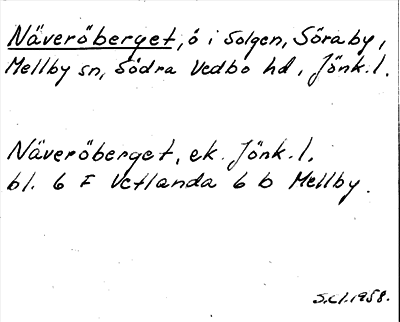 Näveröberget, ö i Solgen, Söraby,
Mellby sn, Södra Vedbo hd, Jönk. l.
Näveröberget, ek. Jönk. l.
bl. 6 F Vetlanda 6 b Mellby.
S.Cl. 1958.